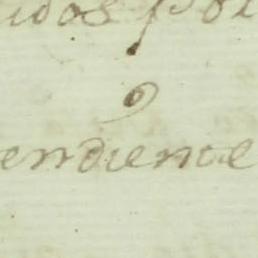 idos por
endiente